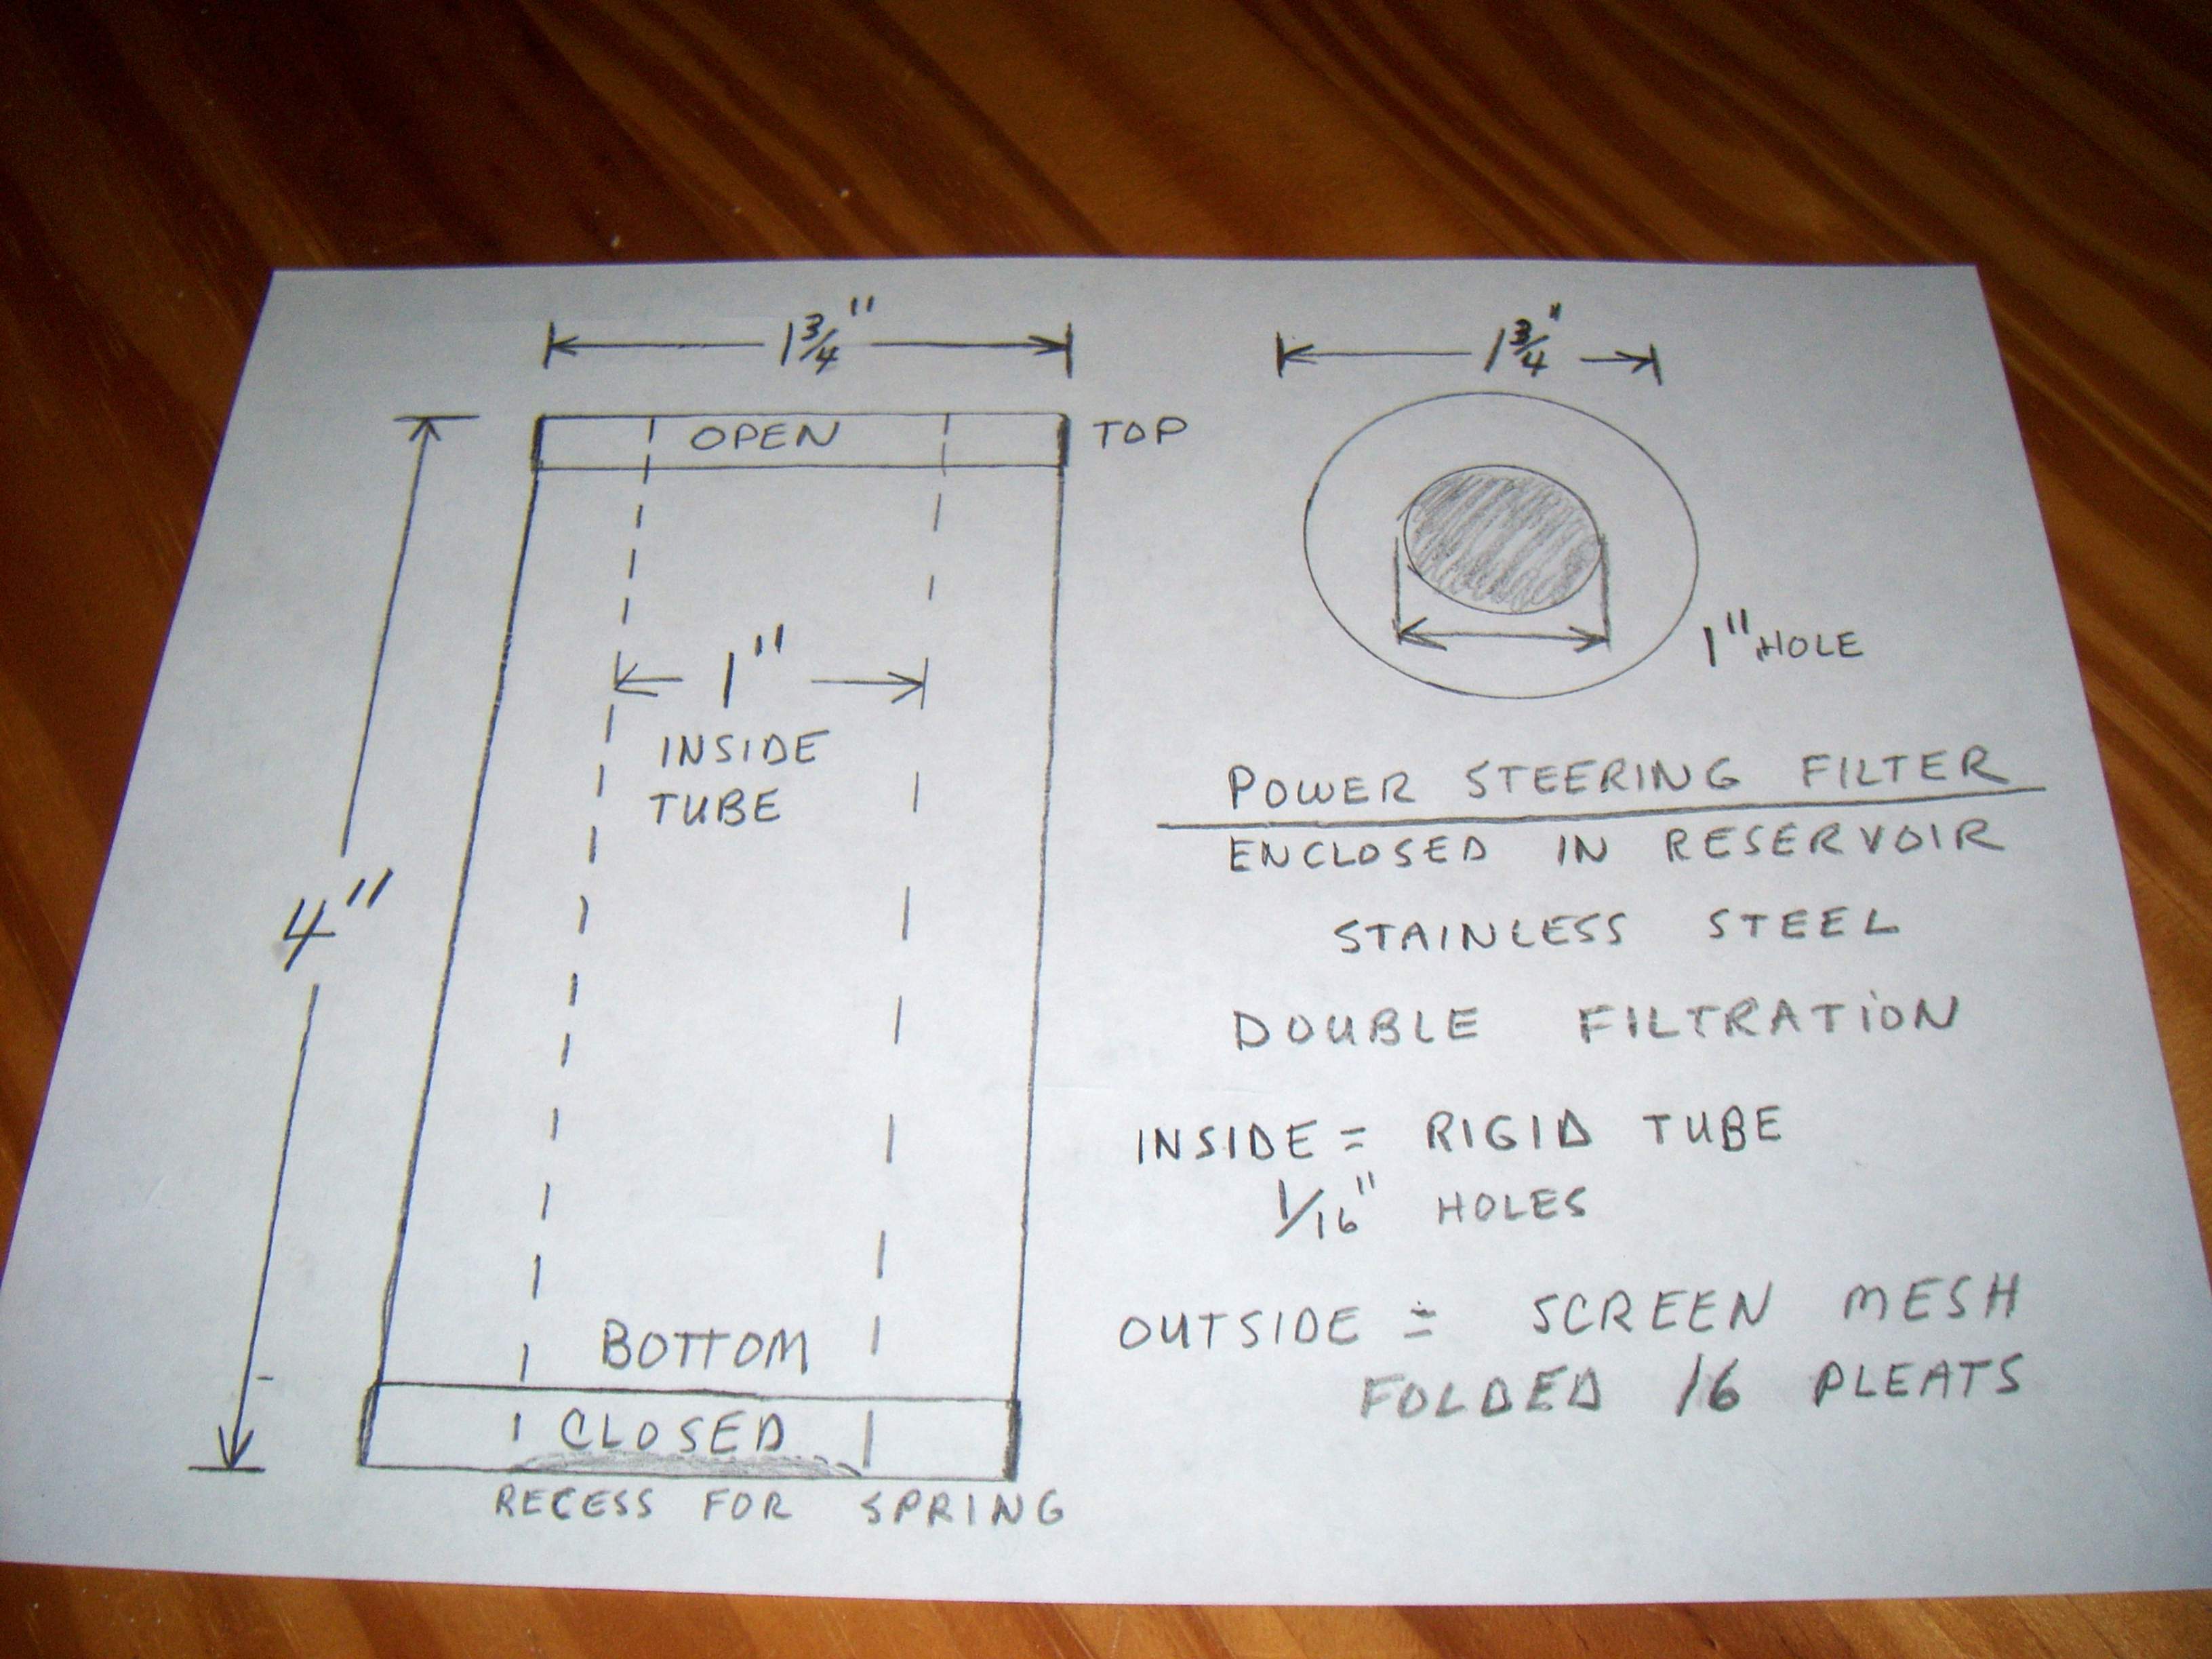 1 3/4"
OPEN
TOP
1"
INSIDE
TUBE
4"
BOTTOM
CLOSED
RECESS FOR SPRING
1 3/4"
1" HOLE
POWER STEERING FILTER
ENCLOSED IN RESERVOIR
STAINLESS STEEL
DOUBLE FILTRATiON
INSIDE = RIGID TUBE
1/16" HOLES
OUTSIDE = SCREEN MESH
FOLDED 16 PLEATS